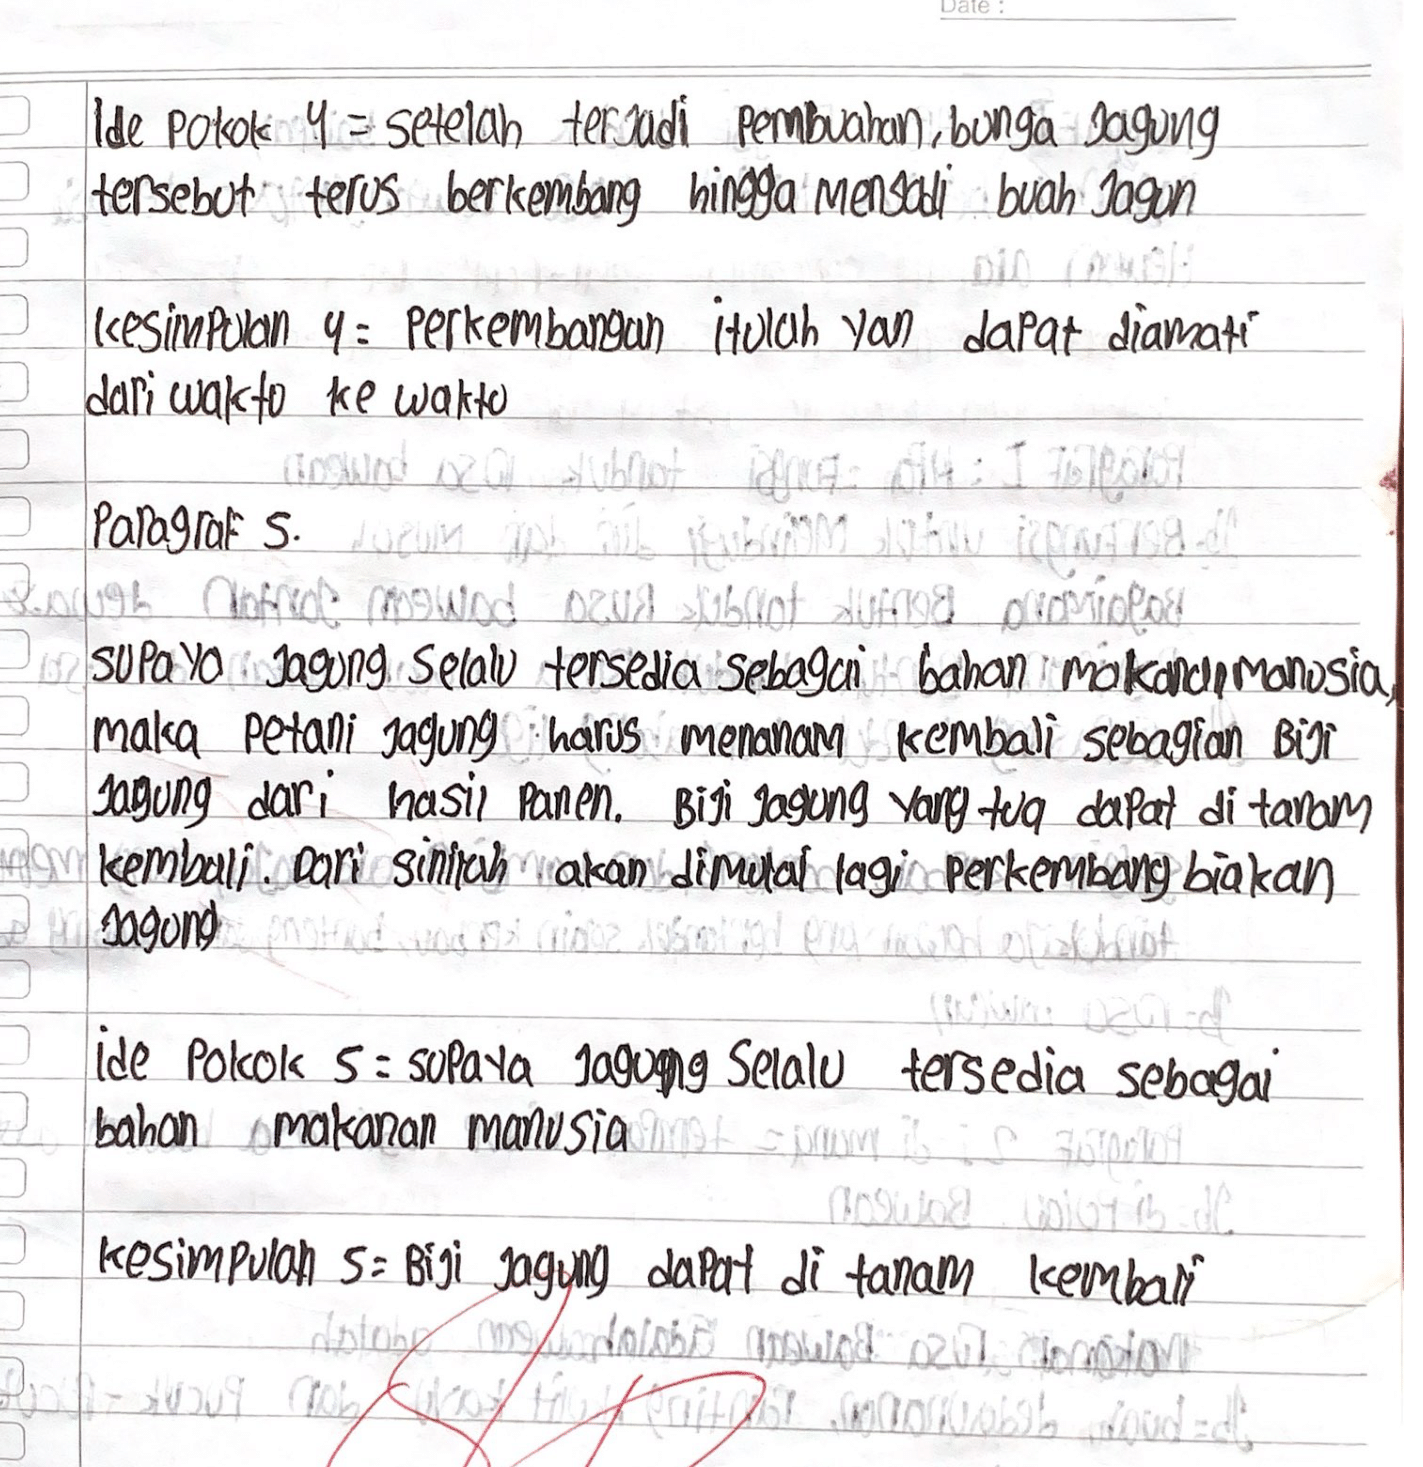 Date :
Ide Pokok 4 = setelah terjadi Pembuahan, bunga jagung
tersebut terus berkembang hingga menjadi buah jagun
kesimpulan 4 = Perkembangan itulah yan dapat diamati
dari wakto ke wakto
Paragraf 5.
supaya jagung selalu tersedia sebagai bahan makanan manusia,
maka Petani jagung harus menanam kembali sebagian Biji
jagung dari hasil Panen. Biji jagung yang tua dapat di tanam
kembali. Dari sinilah akan dimulai lagi Perkembang biakan
jagong
ide Pokok 5 = supaya jagung selalu tersedia sebagai
bahan makanan manusia
kesimpulan 5 = Biji jagung dapat di tanam kembali